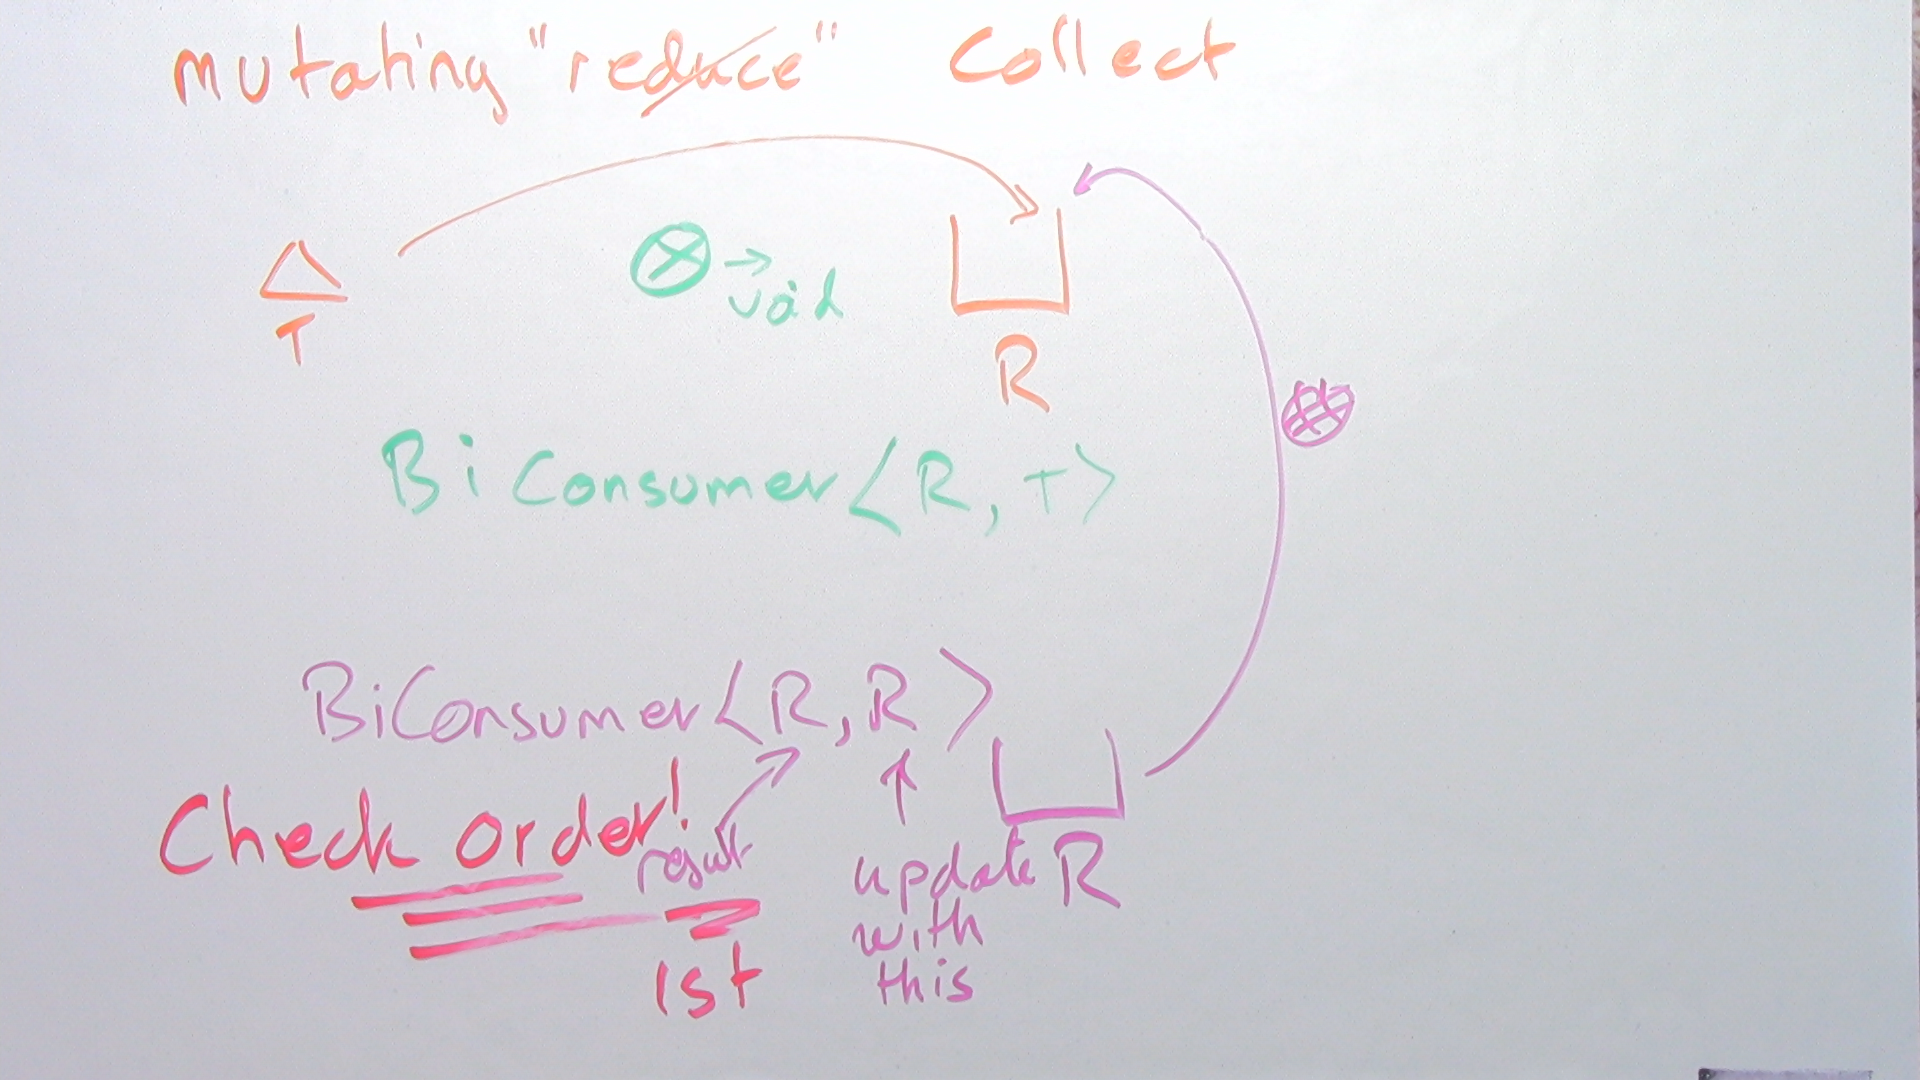 mutating "reduce" collect
→ void
T
R
BiConsumer<R, T>
BiConsumer<R, R>
Check order!
result
update R
with
this
1st